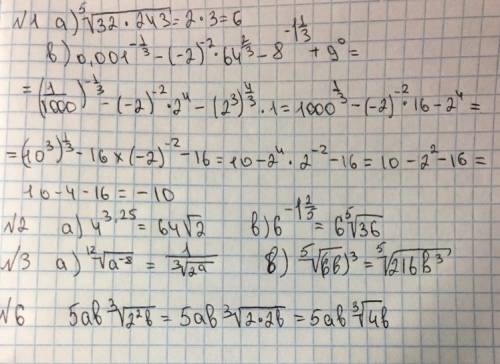 №1 а) ⁵√(32·243) = 2·3 = 6
в) 0,001^(-1/3) - (-2)^(-2) · 64^(2/3) - 8^(-1 1/3) + 9^0 =
= (1/1000)^(-1/3) - (-2)^(-2) · 2^4 - (2^3)^(4/3) · 1 = 1000^(1/3) - (-2)^(-2) · 16 - 2^4 =
= (10^3)^(1/3) - 16 × (-2)^(-2) - 16 = 10 - 2^4 · 2^(-2) - 16 = 10 - 2^2 - 16 =
10 - 4 - 16 = -10
№2 а) 4^(3,25) = 64√2 в) 6^(-1 2/5) = 6 ⁵√36
№3 а) ¹²√(a^(-8)) = 1/(³√(2^a)) в) ⁵√(6b)^3 = ⁵√(216b^3)
№6 5ab ³√(2^2b) = 5ab ³√(2·2b) = 5ab ³√4b